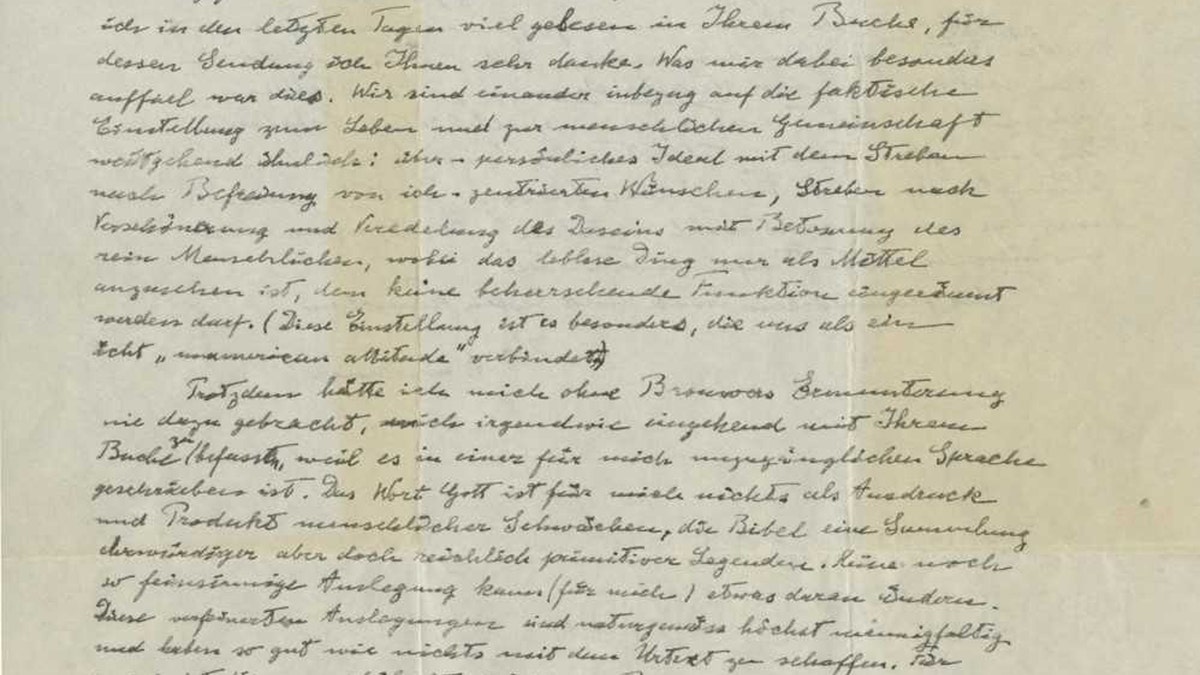 ich in den letzten Tagen viel gelesen in Ihrem Buche, für
dessen Sendung ich Ihnen sehr danke. Was mir dabei besonders
auffiel war dies. Wir sind einander inbezug auf die faktische
Einstellung zum Leben und zur menschlichen Gemeinschaft
weitgehend ähnlich: über-persönliches Ideal mit dem Streben
nach Befreiung von ich-zentrierten Wünschen, Streben nach
Verschönerung und Veredelung des Daseins mit Betonung des
rein Menschlichen, wobei das leblose Ding nur als Mittel
anzusehen ist, dem keine beherrschende Funktion eingeräumt
werden darf. (Diese Einstellung ist es besonders, die uns als ein
echt „unamerican attitude" verbindet.)
Trotzdem hätte ich mich ohne Brouwers Ermunterung
nie dazu gebracht, mich irgendwie eingehend mit Ihrem
Buche zu befassen, weil es in einer für mich unzugänglichen Sprache
geschrieben ist. Das Wort Gott ist für mich nichts als Ausdruck
und Produkt menschlicher Schwächen, die Bibel eine Sammlung
ehrwürdiger aber doch reichlich primitiver Legenden. Keine noch
so feinsinnige Auslegung kann (für mich) etwas daran ändern.
Diese verfeinerten Auslegungen sind naturgemäss höchst mannigfaltig
und haben so gut wie nichts mit dem Urtext zu schaffen. Für